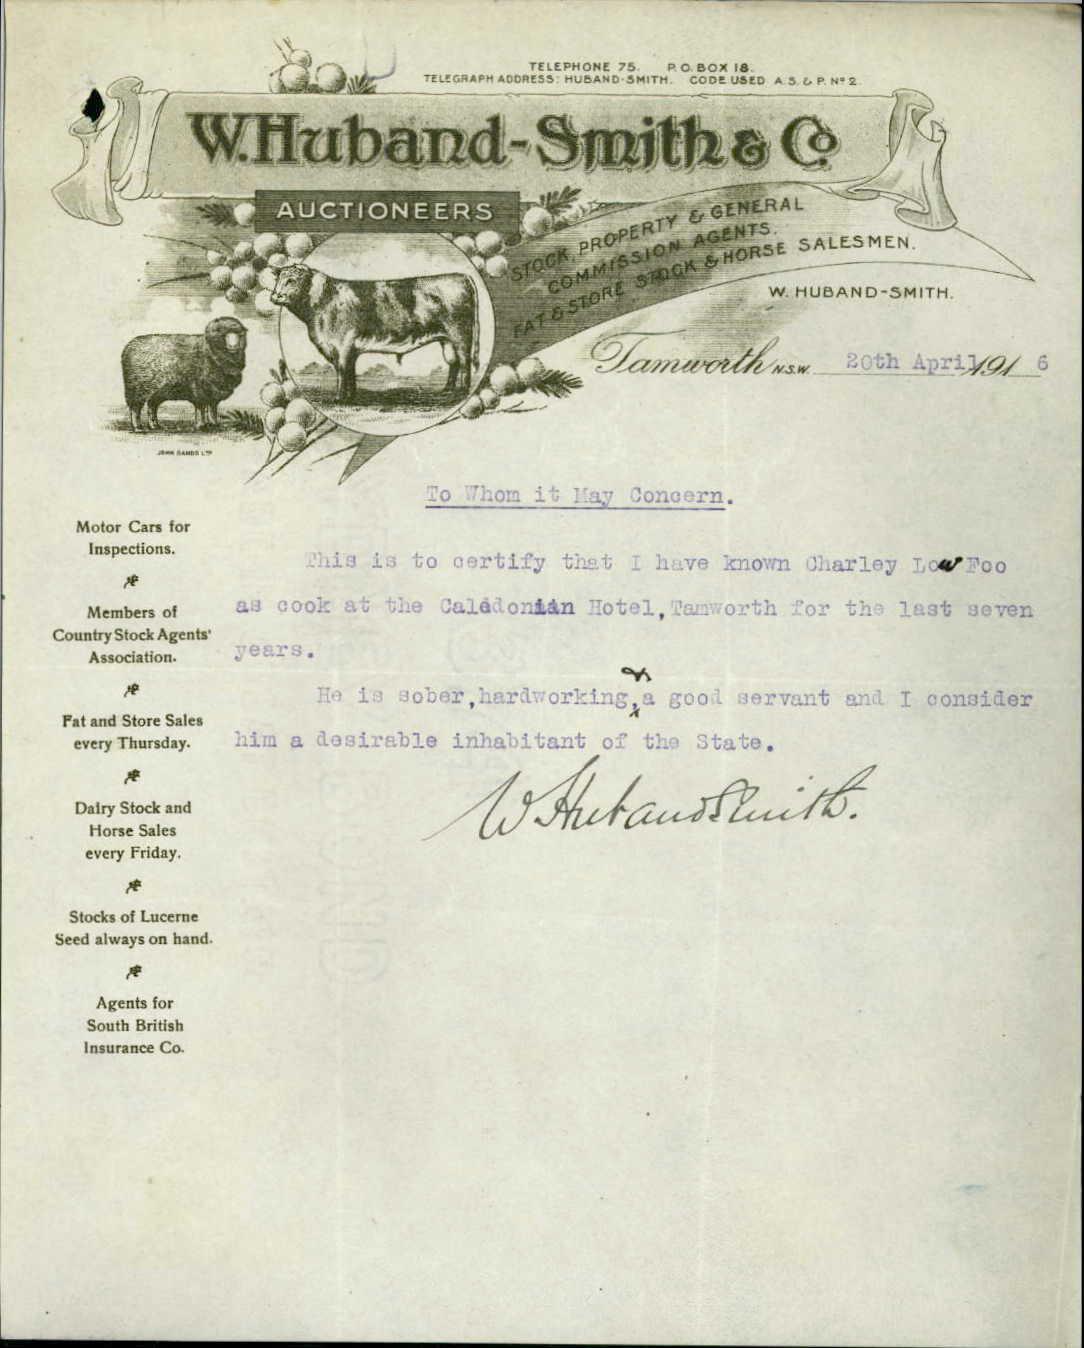 TELEPHONE 75. P.O. BOX 18.
TELEGRAPH ADDRESS: HUBAND-SMITH. CODE USED A.S. & P. Nº 2.
W. Huband-Smith & Co
AUCTIONEERS
STOCK, PROPERTY & GENERAL
COMMISSION AGENTS.
FAT & STORE STOCK & HORSE SALESMEN.
W. HUBAND-SMITH.
Tamworth N.S.W. 20th April 1916
JOHN SANDS LTD
To Whom it May Concern.
This is to certify that I have known Charley Low Foo
as cook at the Caledonian Hotel,Tamworth for the last seven
years.
He is sober,hardworking, & a good servant and I consider
him a desirable inhabitant of the State.
W Huband Smith.
Motor Cars for
Inspections.
Members of
Country Stock Agents'
Association.
Fat and Store Sales
every Thursday.
Dairy Stock and
Horse Sales
every Friday.
Stocks of Lucerne
Seed always on hand.
Agents for
South British
Insurance Co.